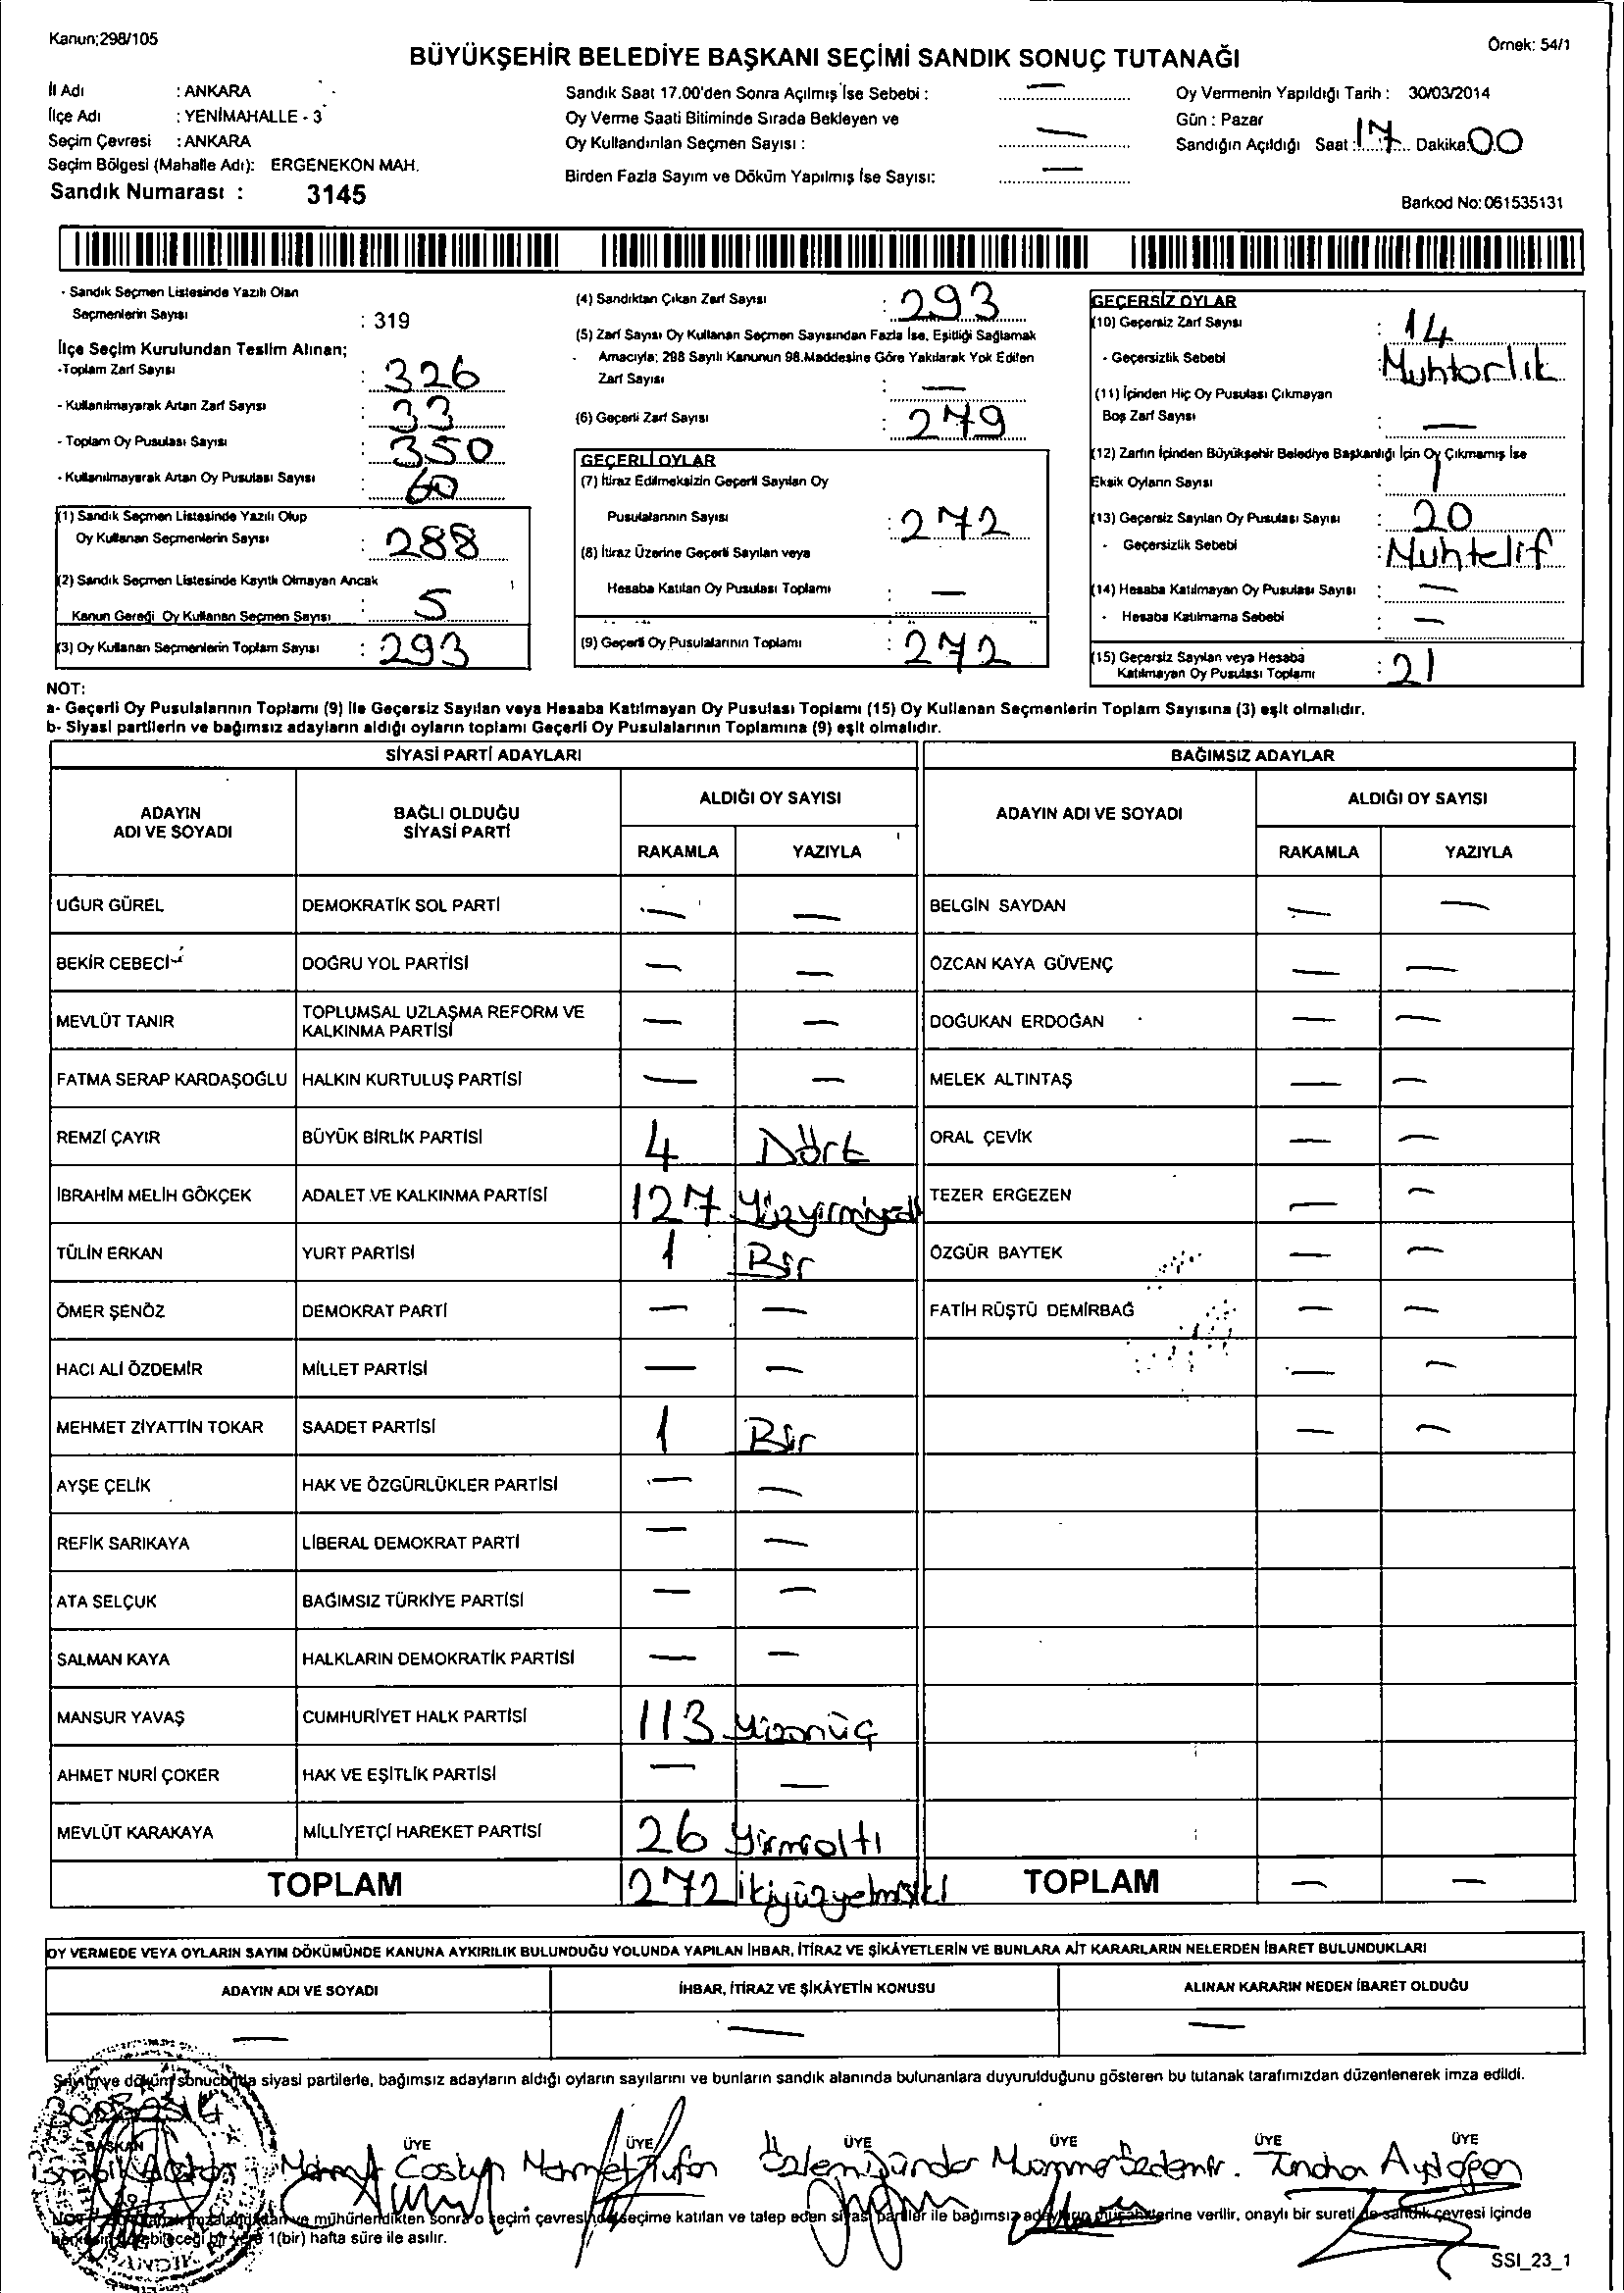 Kanun;298/105
Örnek: 54/1
BÜYÜKŞEHİR BELEDİYE BAŞKANI SEÇİMİ SANDIK SONUÇ TUTANAĞI
İl Adı : ANKARA
İlçe Adı : YENİMAHALLE - 3
Seçim Çevresi : ANKARA
Seçim Bölgesi (Mahalle Adı): ERGENEKON MAH.
Sandık Numarası : 3145
Sandık Saat 17.00'den Sonra Açılmış İse Sebebi : —
Oy Verme Saati Bitiminde Sırada Bekleyen ve
Oy Kullandırılan Seçmen Sayısı : —
Birden Fazla Sayım ve Döküm Yapılmış İse Sayısı: —
Oy Vermenin Yapıldığı Tarih : 30/03/2014
Gün : Pazar
Sandığın Açıldığı Saat : 17 Dakika: 00
Barkod No: 061535131
- Sandık Seçmen Listesinde Yazılı Olan
Seçmenlerin Sayısı : 319
İlçe Seçim Kurulundan Teslim Alınan;
-Toplam Zarf Sayısı : 326
- Kullanılmayarak Artan Zarf Sayısı : 33
- Toplam Oy Pusulası Sayısı : 350
- Kullanılmayarak Artan Oy Pusulası Sayısı : 60
(1) Sandık Seçmen Listesinde Yazılı Olup
Oy Kullanan Seçmenlerin Sayısı : 288
(2) Sandık Seçmen Listesinde Kayıtlı Olmayan Ancak
Kanun Gereği Oy Kullanan Seçmen Sayısı : 5
(3) Oy Kullanan Seçmenlerin Toplam Sayısı : 293
(4) Sandıktan Çıkan Zarf Sayısı : 293
(5) Zarf Sayısı Oy Kullanan Seçmen Sayısından Fazla İse, Eşitliği Sağlamak
- Amacıyla; 298 Sayılı Kanunun 98.Maddesine Göre Yakılarak Yok Edilen
Zarf Sayısı : —
(6) Geçerli Zarf Sayısı : 279
GEÇERLİ OYLAR
(7) İtiraz Edilmeksizin Geçerli Sayılan Oy
Pusulalarının Sayısı : 272
(8) İtiraz Üzerine Geçerli Sayılan veya
Hesaba Katılan Oy Pusulası Toplamı : —
(9) Geçerli Oy Pusulalarının Toplamı : 272
GEÇERSİZ OYLAR
(10) Geçersiz Zarf Sayısı : 14
- Geçersizlik Sebebi Muhtarlık
(11) İçinden Hiç Oy Pusulası Çıkmayan
Boş Zarf Sayısı : —
(12) Zarfın İçinden Büyükşehir Belediye Başkanlığı İçin Oy Çıkmamış İse
Eksik Oyların Sayısı : 1
(13) Geçersiz Sayılan Oy Pusulası Sayısı : 20
- Geçersizlik Sebebi : Muhtelif
(14) Hesaba Katılmayan Oy Pusulası Sayısı : —
- Hesaba Katılmama Sebebi : —
(15) Geçersiz Sayılan veya Hesaba
Katılmayan Oy Pusulası Toplamı : 21
NOT:
a- Geçerli Oy Pusulalarının Toplamı (9) İle Geçersiz Sayılan veya Hesaba Katılmayan Oy Pusulası Toplamı (15) Oy Kullanan Seçmenlerin Toplam Sayısına (3) eşit olmalıdır.
b- Siyasi partilerin ve bağımsız adayların aldığı oyların toplamı Geçerli Oy Pusulalarının Toplamına (9) eşit olmalıdır.
SİYASİ PARTİ ADAYLARI BAĞIMSIZ ADAYLAR
ADAYIN ADI VE SOYADI BAĞLI OLDUĞU SİYASİ PARTİ ALDIĞI OY SAYISI ADAYIN ADI VE SOYADI ALDIĞI OY SAYISI
RAKAMLA YAZIYLA RAKAMLA YAZIYLA
UĞUR GÜREL DEMOKRATİK SOL PARTİ — — BELGİN SAYDAN — —
BEKİR CEBECİ DOĞRU YOL PARTİSİ — — ÖZCAN KAYA GÜVENÇ — —
MEVLÜT TANIR TOPLUMSAL UZLAŞMA REFORM VE KALKINMA PARTİSİ — — DOĞUKAN ERDOĞAN — —
FATMA SERAP KARDAŞOĞLU HALKIN KURTULUŞ PARTİSİ — — MELEK ALTINTAŞ — —
REMZİ ÇAYIR BÜYÜK BİRLİK PARTİSİ 4 Dört ORAL ÇEVİK — —
İBRAHİM MELİH GÖKÇEK ADALET VE KALKINMA PARTİSİ 127 Yüzyirmiyedi TEZER ERGEZEN — —
TÜLİN ERKAN YURT PARTİSİ 1 Bir ÖZGÜR BAYTEK — —
ÖMER ŞENÖZ DEMOKRAT PARTİ — — FATİH RÜŞTÜ DEMİRBAĞ — —
HACI ALİ ÖZDEMİR MİLLET PARTİSİ — — — —
MEHMET ZİYATTİN TOKAR SAADET PARTİSİ 1 Bir — —
AYŞE ÇELİK HAK VE ÖZGÜRLÜKLER PARTİSİ — —
REFİK SARIKAYA LİBERAL DEMOKRAT PARTİ — —
ATA SELÇUK BAĞIMSIZ TÜRKİYE PARTİSİ — —
SALMAN KAYA HALKLARIN DEMOKRATİK PARTİSİ — —
MANSUR YAVAŞ CUMHURİYET HALK PARTİSİ 113 Yüzonüç
AHMET NURİ ÇOKER HAK VE EŞİTLİK PARTİSİ — —
MEVLÜT KARAKAYA MİLLİYETÇİ HAREKET PARTİSİ 26 Yirmialtı
TOPLAM 272 ikiyüzyetmişiki TOPLAM — —
OY VERMEDE VEYA OYLARIN SAYIM DÖKÜMÜNDE KANUNA AYKIRILIK BULUNDUĞU YOLUNDA YAPILAN İHBAR, İTİRAZ VE ŞİKÂYETLERİN VE BUNLARA AİT KARARLARIN NELERDEN İBARET BULUNDUKLARI
ADAYIN ADI VE SOYADI İHBAR, İTİRAZ VE ŞİKÂYETİN KONUSU ALINAN KARARIN NEDEN İBARET OLDUĞU
— — —
Sayım ve döküm sonucunda siyasi partilerle, bağımsız adayların aldığı oyların sayılarını ve bunların sandık alanında bulunanlara duyurulduğunu gösteren bu tutanak tarafımızdan düzenlenerek imza edildi.
BAŞKAN ÜYE ÜYE ÜYE ÜYE ÜYE ÜYE
Coskun Tufan
ve mühürlendikten sonra o seçim çevresinde seçime katılan ve talep eden siyasi partiler ile bağımsız adayların müşahitlerine verilir, onaylı bir sureti de sandık çevresi içinde
1(bir) hafta süre ile asılır.
SSI_23_1